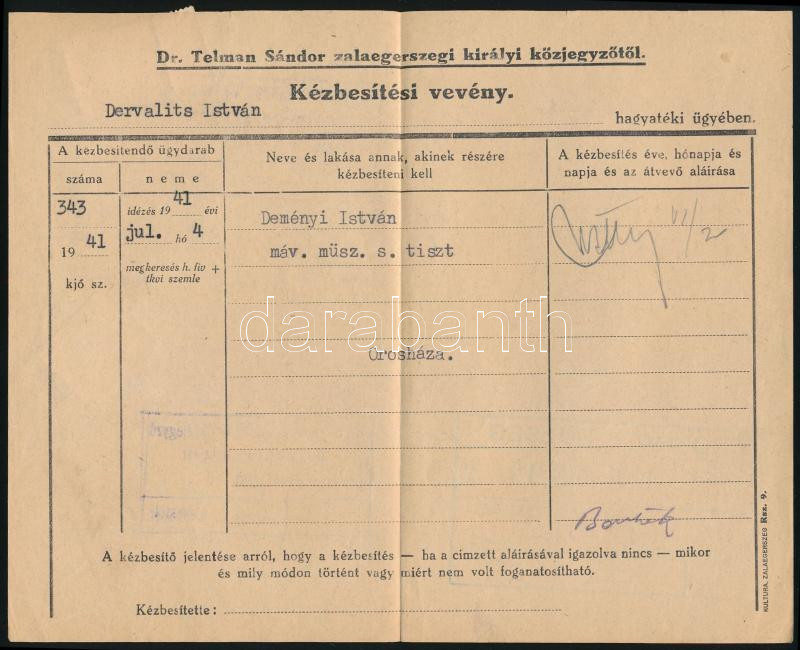 Dr. Telman Sándor zalaegerszegi királyi közjegyzőtől.
Kézbesítési vevény.
Dervalits István
hagyatéki ügyében.
A kézbesítendő ügydarab
száma
neme
Neve és lakása annak, akinek részére
kézbesíteni kell
A kézbesítés éve, hónapja és
napja és az átvevő aláírása
343
1941
kjő sz.
idézés 1941 évi
jul. hó 4
megkeresés h. liv +
tkvi szemle
Deményi István
máv. müsz. s. tiszt
Orosháza.
VI/2
darabanth
A kézbesítő jelentése arról, hogy a kézbesítés — ha a címzett aláírásával igazolva nincs — mikor
és mily módon történt vagy miért nem volt foganatosítható.
Kézbesítette:
KULTURA, ZALAEGERSZEG Rsz. 9.